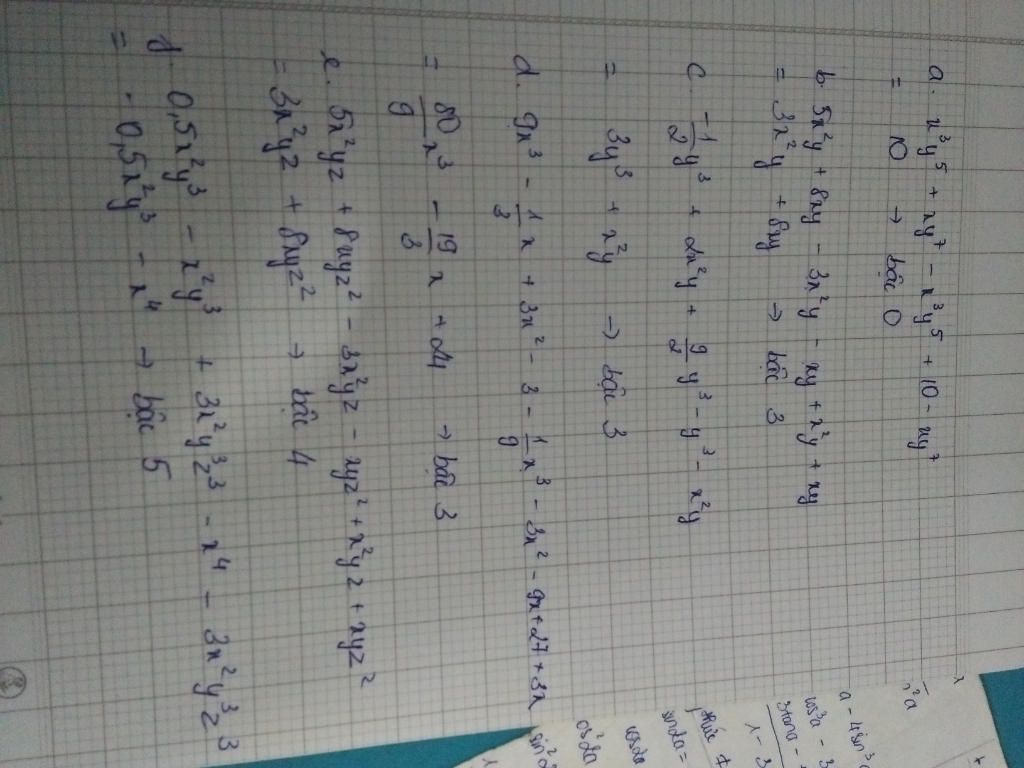 a. x³y⁵ + xy⁷ - x³y⁵ + 10 - xy⁷
= 10 → bậc 0
b. 5x²y + 8xy - 3x²y - xy + x²y + xy
= 3x²y + 8xy → bậc 3
c. -1/2 y³ + 2x²y + 9/2 y³ - y³ - x²y
= 3y³ + x²y → bậc 3
d. 9x³ - 1/3 x + 3x² - 3 - 1/9 x³ - 3x² - 9x + 27 + 3x
= 80/9 x³ - 19/3 x + 24 → bậc 3
e. 5x²yz + 8xyz² - 3x²yz - xyz² + x²yz + xyz²
= 3x²yz + 8xyz² → bậc 4
f. 0,5x²y³ - x²y³ + 3x²y³z³ - x⁴ - 3x²y³z³
= - 0,5x²y³ - x⁴ → bậc 5
a - 4sin³
cos³a - 3
3tana -
1 - 3
thức
sin2a =
cos2a
cos²2a
sin²